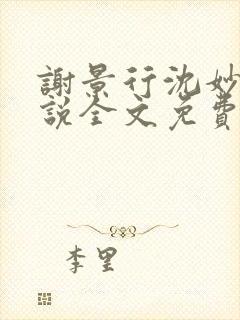 謝景行沈妙
說全文免費
李里